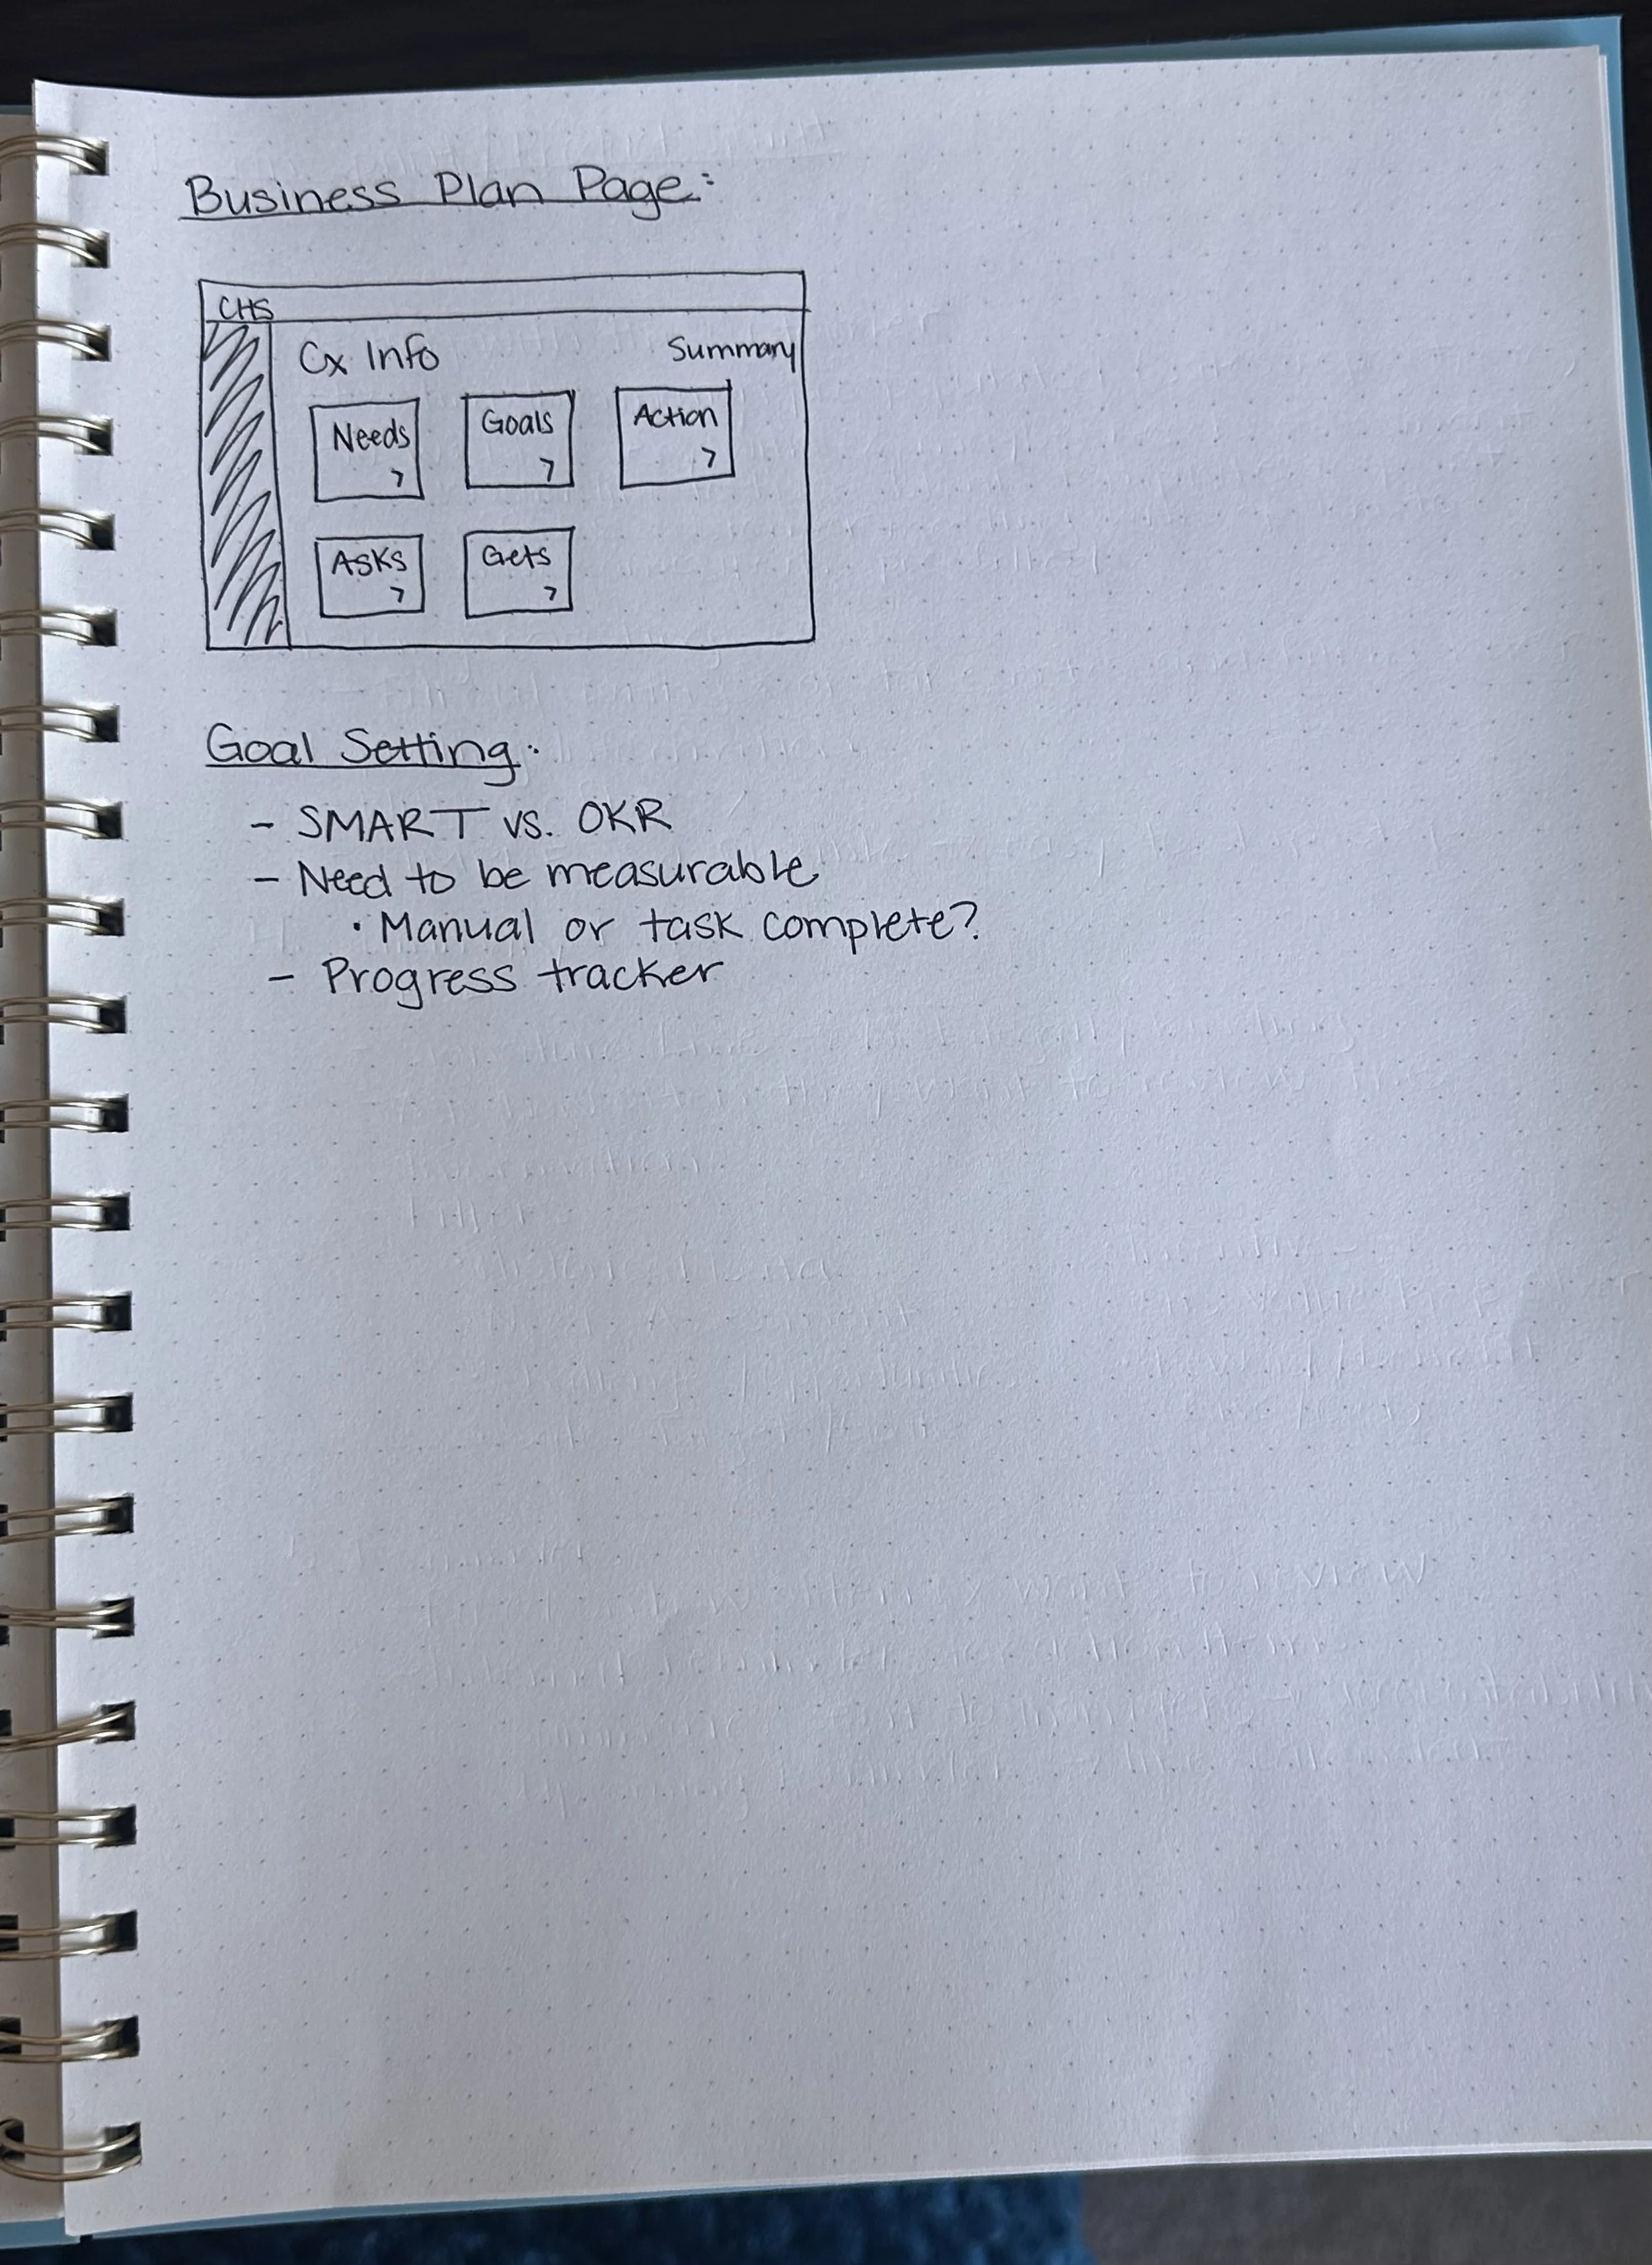 Business Plan Page:
CHS
Cx Info Summary
Needs > Goals > Action >
Asks > Gets >
Goal Setting:
- SMART vs. OKR
- Need to be measurable
• Manual or task complete?
- Progress tracker